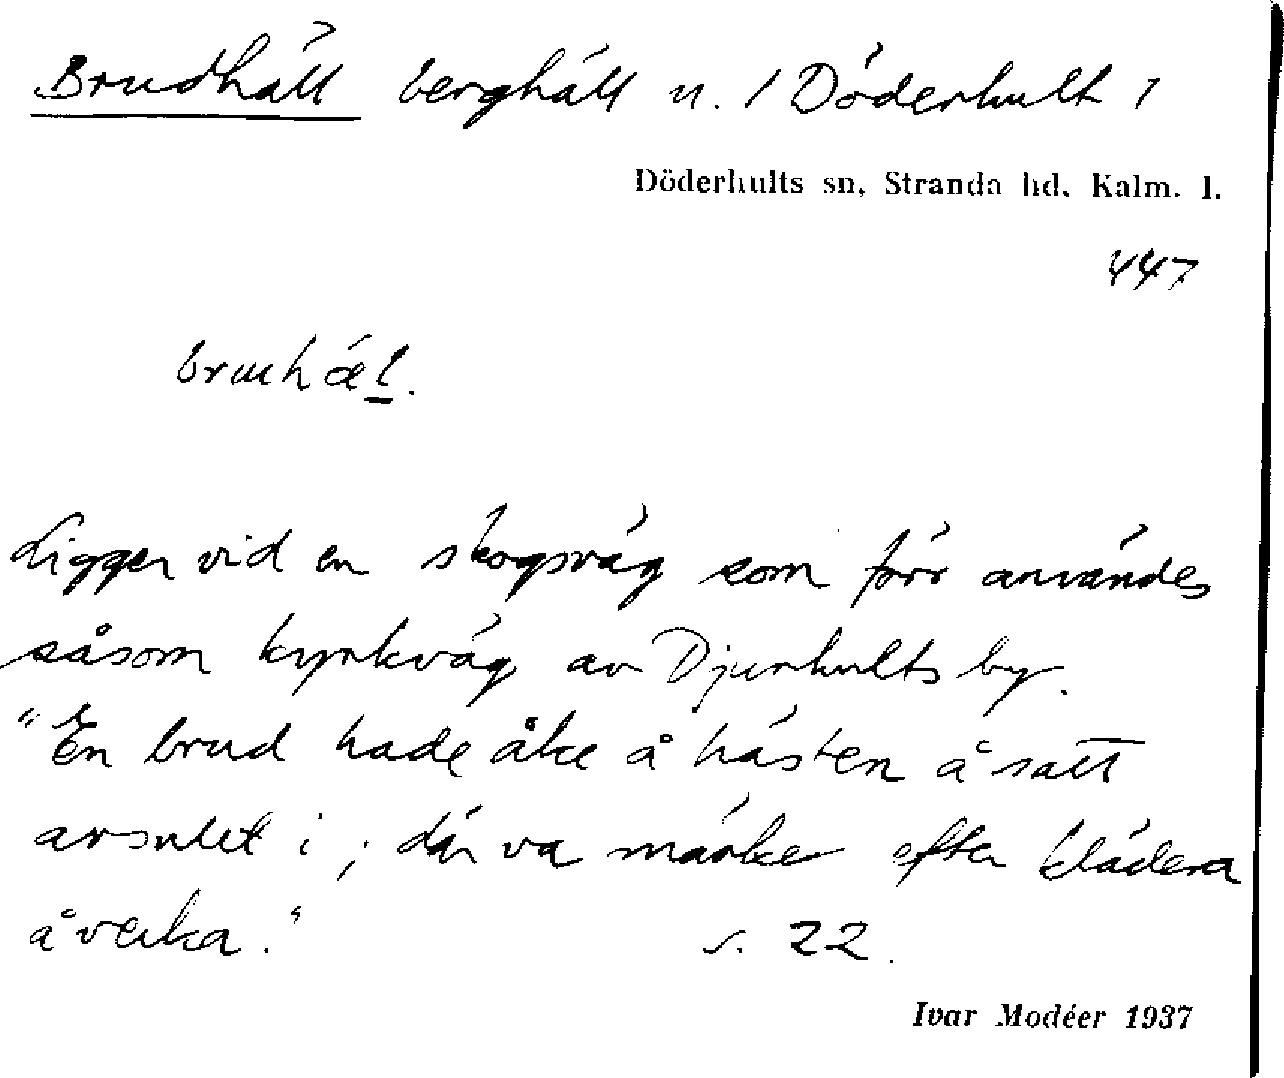 Brudhäll berghäll n. / Döderhult /
Döderhults sn, Stranda hd, Kalm. l.
447
bruhæl.
Ligger vid en skogsväg som förr användes
såsom kyrkväg av Djurhults by.
"En brud hade åke å hästen å satt
avsulet i; där va märke efter klädera
å veka." s. 22.
Ivar Modéer 1937